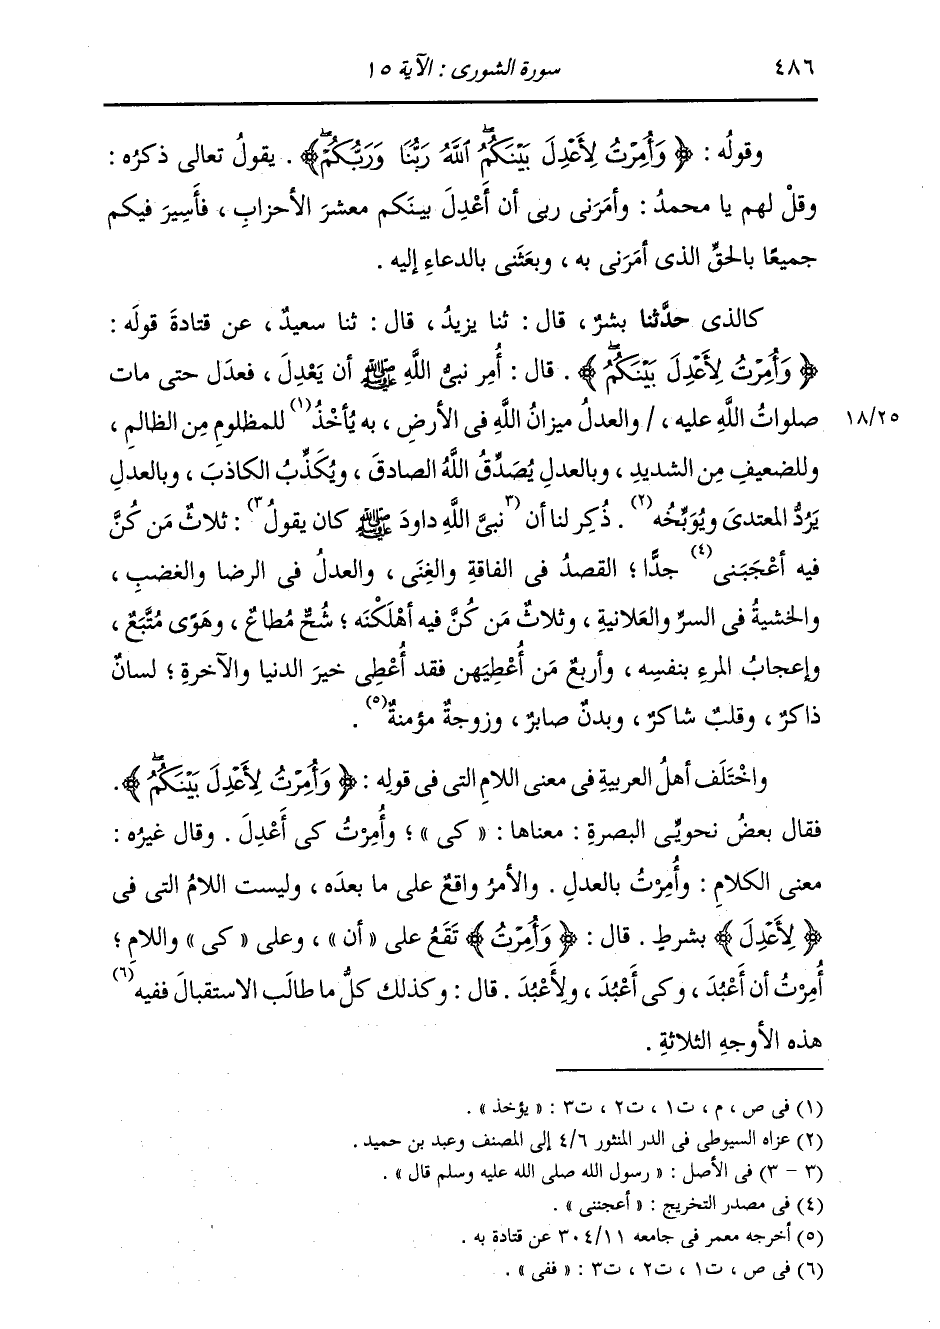 ٤٨٦ سورة الشورى : الآية ١٥
وقولُه : ﴿ وَأُمِرْتُ لِأَعْدِلَ بَيْنَكُمُۖ ٱللَّهُ رَبُّنَا وَرَبُّكُمْۖ ﴾ . يقولُ تعالى ذكرُه :
وقلْ لهم يا محمدُ : وأمَرَنى ربى أن أَعْدِلَ بينَكم معشرَ الأحزابِ ، فأَسِيرَ فيكم
جميعًا بالحقِّ الذى أمَرَنى به ، وبعَثَنى بالدعاءِ إليه .
كالذى حدَّثنا بشرٌ ، قال : ثنا يزيدُ ، قال : ثنا سعيدٌ ، عن قتادةَ قولَه :
﴿ وَأُمِرْتُ لِأَعْدِلَ بَيْنَكُمُۖ ﴾ . قال : أُمِر نبىُّ اللَّهِ ﷺ أن يَعْدِلَ ، فعدَل حتى مات
صلواتُ اللَّهِ عليه ، / والعدلُ ميزانُ اللَّهِ فى الأرضِ ، به يُأخْذُ(١) للمظلومِ مِن الظالمِ ، ١٨/٢٥
وللضعيفِ مِن الشديدِ ، وبالعدلِ يُصَدِّقُ اللَّهُ الصادقَ ، ويُكَذِّبُ الكاذبَ ، وبالعدلِ
يَرُدُّ المعتدىَ ويُوَبِّخُه(٢) . ذُكِر لنا أن (٣ نبىَّ اللَّهِ داودَ ﷺ كان يقولُ ٣) : ثلاثٌ مَن كُنَّ
فيه أعْجَبَنى(٤) جدًّا ؛ القصدُ فى الفاقةِ والغِنَى ، والعدلُ فى الرضا والغضبِ ،
والخشيةُ فى السرِّ والعَلانيةِ ، وثلاثٌ مَن كُنَّ فيه أهْلَكْنَه ؛ شُحٌّ مُطاعٌ ، وهَوًى مُتَّبَعٌ ،
وإعجابُ المرءِ بنفسِه ، وأربعٌ مَن أُعْطِيَهن فقد أُعْطِى خيرَ الدنيا والآخرةِ ؛ لسانٌ
ذاكرٌ ، وقلبٌ شاكرٌ ، وبدنٌ صابرٌ ، وزوجةٌ مؤمنةٌ(٥) .
واخْتَلَف أهلُ العربيةِ فى معنى اللامِ التى فى قولِه : ﴿ وَأُمِرْتُ لِأَعْدِلَ بَيْنَكُمُۖ ﴾ .
فقال بعضُ نحويِّى البصرةِ : معناها : « كى » ؛ وأُمِرْتُ كى أَعْدِلَ . وقال غيرُه :
معنى الكلامِ : وأُمِرْتُ بالعدلِ . والأمرُ واقعٌ على ما بعدَه ، وليست اللامُ التى فى
﴿ لِأَعْدِلَ ﴾ بشرطٍ . قال : ﴿ وَأُمِرْتُ ﴾ تَقَعُ على « أن » ، وعلى « كى » واللامِ ؛
أُمِرْتُ أن أَعْبُدَ ، وكى أَعْبُدَ ، ولِأَعْبُدَ . قال : وكذلك كلُّ ما طالَب الاستقبالَ ففيه(٦)
هذه الأوجهِ الثلاثةِ .
(١) فى ص ، م ، ت١ ، ت٢ ، ت٣ : « يؤخذ » .
(٢) عزاه السيوطى فى الدر المنثور ٤/٦ إلى المصنف وعبد بن حميد .
(٣ - ٣) فى الأصل : « رسول الله صلى الله عليه وسلم قال » .
(٤) فى مصدر التخريج : « أعجننى » .
(٥) أخرجه معمر فى جامعه ٣٠٤/١١ عن قتادة به .
(٦) فى ص ، ت١ ، ت٢ ، ت٣ : « ففى » .